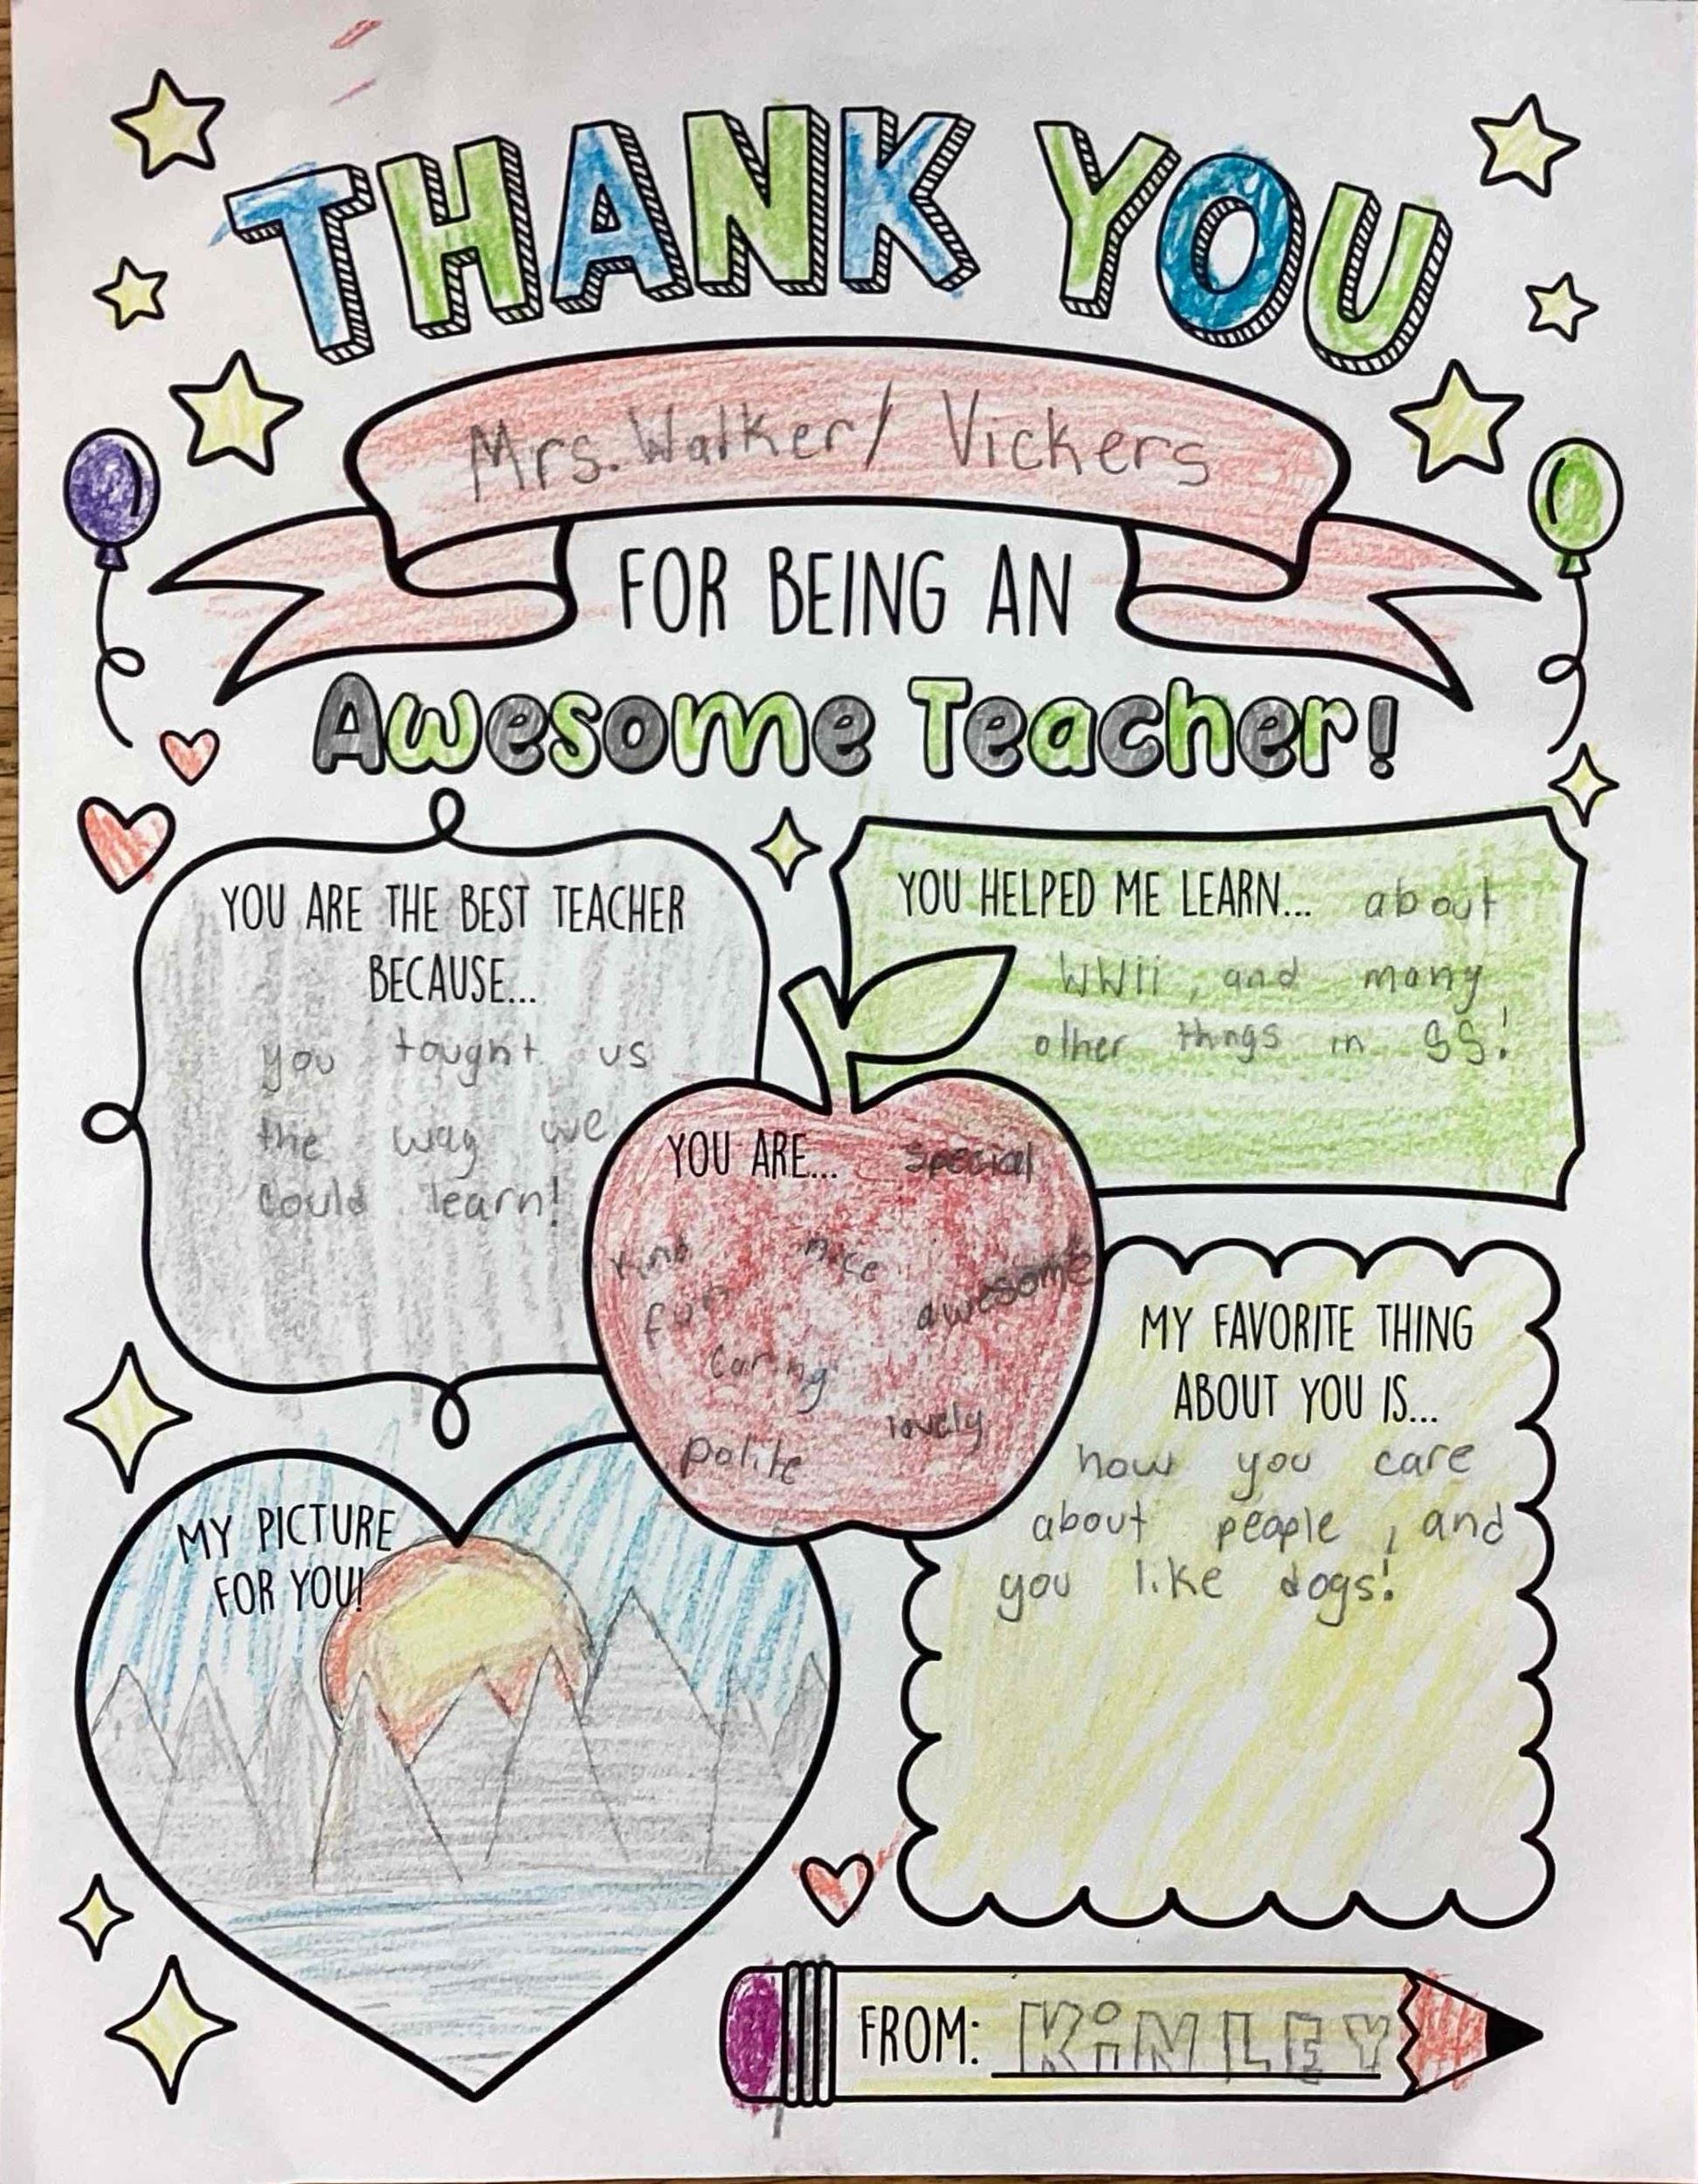 THANK YOU
Mrs. Walker/ Vickers
FOR BEING AN
Awesome Teacher!
YOU ARE THE BEST TEACHER
BECAUSE...
you tought us
the way we
could learn!
YOU HELPED ME LEARN... about
WWii, and many
other things in SS!
YOU ARE... Special
Kind nice
fun awesome
caring
lovely
polite
MY FAVORITE THING
ABOUT YOU IS...
how you care
about people, and
you like dogs!
MY PICTURE
FOR YOU!
FROM: KiNLEY